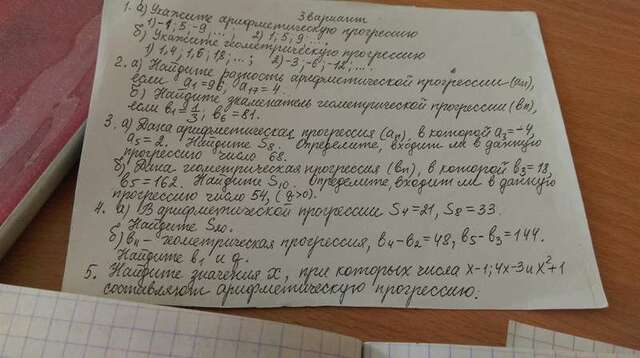 3 вариант
1. а) Укажите арифметическую прогрессию
1) -1; 5; -9 ...; 2) 1; 5; 9 ....
б) Укажите геометрическую прогрессию
1) 1,4; 1,6; 1,8; ...; 2) -3; -6; -12; ....
2. а) Найдите разность арифметической прогрессии (an),
если a1=96, a17=4.
б) Найдите знаменатель геометрической прогрессии (bn),
если b1=1/3; b6=81.
3. а) Дана арифметическая прогрессия (an), в которой a3=-4,
a5=2. Найдите S8. Определите, входит ли в данную
прогрессию число 68.
б) Дана геометрическая прогрессия (bn), в которой b3=18,
b5=162. Найдите S10. Определите, входит ли в данную
прогрессию число 54, (q>0).
4. а) В арифметической прогрессии S4=21, S8=33.
Найдите S20.
б) bn - геометрическая прогрессия, b4-b2=48, b5-b3=144.
Найдите b1 и q.
5. Найдите значения x, при которых числа x-1; 4x-3 и x²+1
составляют арифметическую прогрессию.